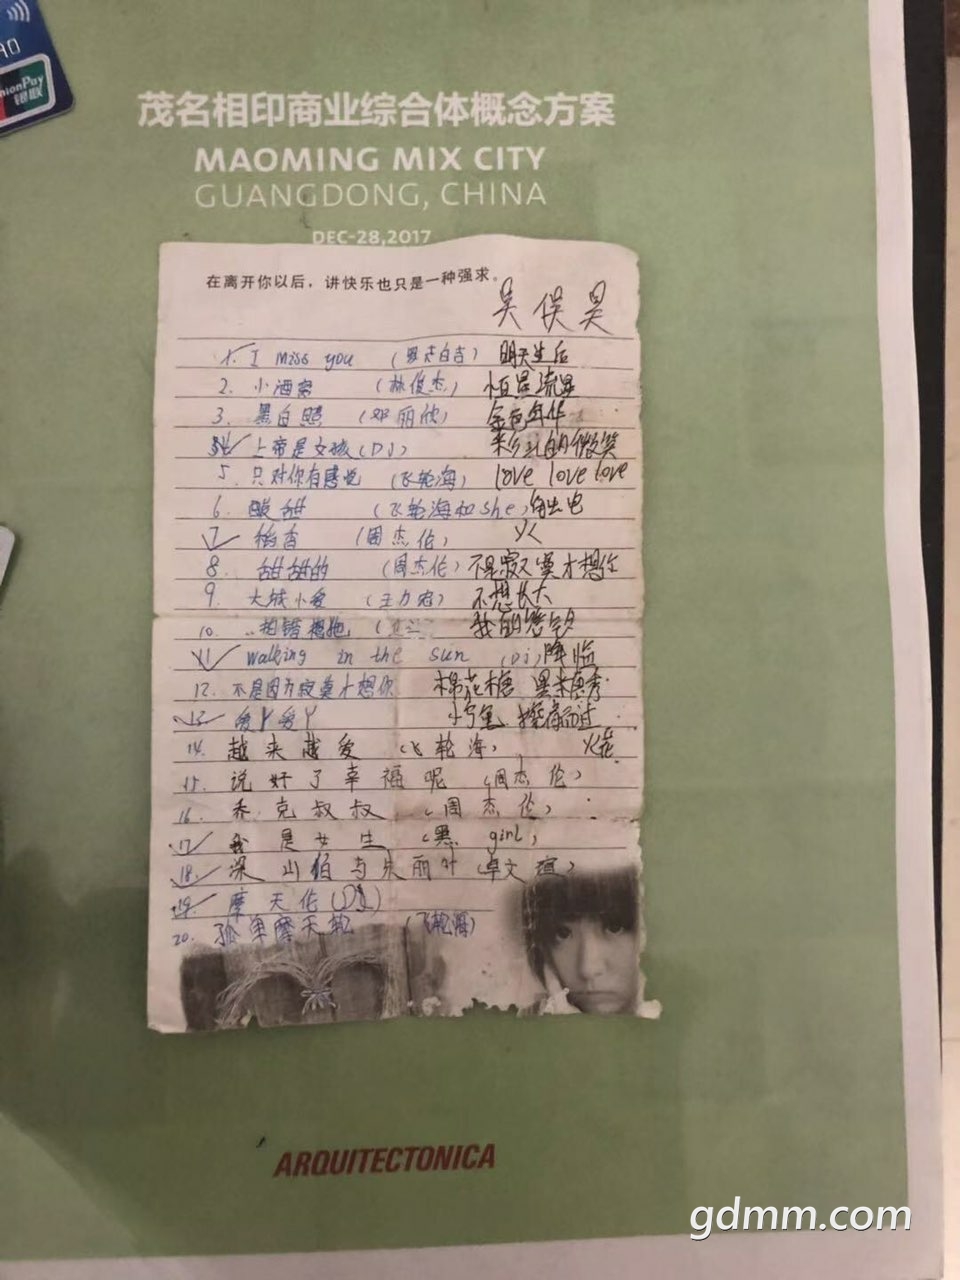 UnionPay
银联
茂名相印商业综合体概念方案
MAOMING MIX CITY
GUANGDONG, CHINA
DEC-28,2017
在离开你以后，讲快乐也只是一种强求。
吴俣昊
1. I Miss you (罗志自吉) 明天过后
2. 小酒窝 (林俊杰) 恒星流星
3. 黑白照 (邓丽欣) 金色年华
4. 上帝是女孩 (DJ) 的微笑
5. 只对你有感觉 (飞轮海) love love love
6. 酸甜 (飞轮海和she) 出电
7. 稻香 (周杰伦) 火
8. 甜甜的 (周杰伦) 不是寂寞才想你
9. 大城小爱 (王力宏) 不想长大
10. 我的答
11. walking in the sun (Dj) 降临
12. 不是因为寂寞才想你 棉花糖 黑糖秀
13. 爱丫爱丫 擦肩而过
14. 越来越爱 (飞轮海) 火花
15. 说好了幸福呢 (周杰伦)
16. 乔克叔叔 (周杰伦)
17. 我是女生 (黑girl)
18. 深山伯与朱丽叶 (卓文萱)
19. 摩天伦 (DJ)
20. 孤单摩天轮 (飞轮海)
ARQUITECTONICA
gdmm.com